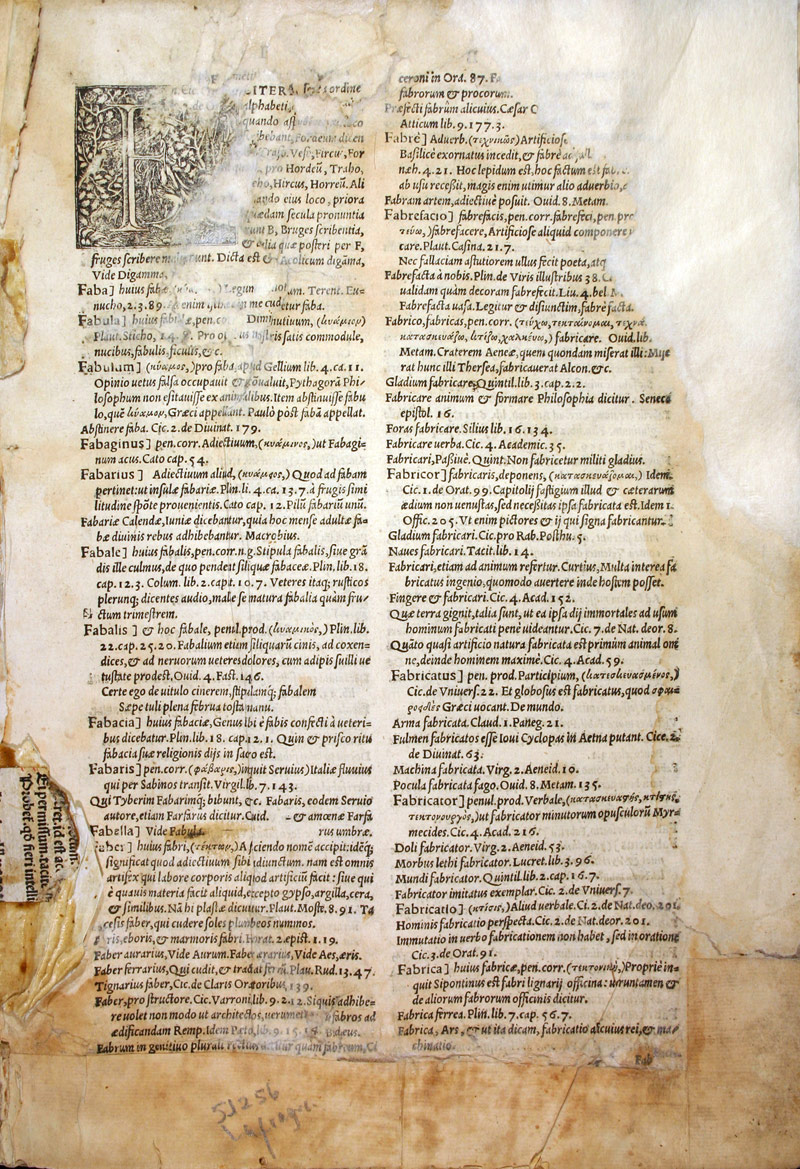 F
ITERA
ordine
alphabeti,
quando
Fircus, For
pro Hordeũ, Traho,
Hircus, Horreũ. Ali
eius loco, priora
secula pronuntia
B, Bruges scribentia,
& alia quæ posteri per F,
fruges scriberent. Dicta est & Æolicum digãma,
Vide Digamma,
Faba] huius fabæ
Terent. Eu=
nucho, 2.3.89. me cudetur faba.
Fabula] huius fabulæ, pen.c Diminutiuum, (κυάμιον)
Plaut. Sticho, satis commodule,
nucibus, fabulis, ficulis, &c.
Fabulum] (κύαμος,) pro faba apud Gellium lib. 4. ca. 11.
Opinio uetus falsa occupauit & cõualuit, Pythagorã Phi=
losophum non esitauisse ex animalibus. Item abstinuisse fabu
lo, quẽ κύαμον, Græci appellant. Paulò pòst fabã appellat.
Abstinere faba. Cic. 2. de Diuinat. 179.
Fabaginus] pen. corr. Adiectiuum, (κυάμινος,) ut Fabagi=
num acus. Cato cap. 54.
Fabarius] Adiectiuum aliud, (κυάμιος,) Quod ad fabam
pertinet: ut insulæ fabariæ. Plin. li. 4. ca. 13. 7. à frugis simi
litudine spõte prouenientis. Cato cap. 12. Pilũ fabariũ unũ.
Fabariæ Calendæ, Iuniæ dicebantur, quia hoc mense adultæ fa=
bæ diuinis rebus adhibebantur. Macrobius.
Fabale] huius fabalis, pen. corr. n. g. Stipula fabalis, siue grã
dis ille culmus, de quo pendent siliquæ fabaceæ. Plin. lib. 18.
cap. 12. 3. Colum. lib. 2. capit. 10. 7. Veteres itaq; rusticos
plerunq; dicentes audio, male se matura fabalia quàm fru=
ctum trimestrem.
Fabalis] & hoc fabale, penul. prod. (κυάμινος,) Plin. lib.
22. cap. 25. 20. Fabalium etiam siliquarũ cinis, ad coxen=
dices, & ad neruorum ueteres dolores, cum adipis suilli ue
tustate prodest. Ouid. 4. Fast. 146.
Certe ego de uitulo cinerem, stipulamq; fabalem
Sæpe tuli plena februa tosta manu.
Fabacia] huius fabaciæ, Genus libi è fabis confecti à ueteri=
bus dicebatur. Plin. lib. 18. cap. 12. 1. Quin & prisco ritu
fabacia suæ religionis dijs in sacro est.
Fabaris] pen. corr. (φάβαρις,) inquit Seruius) Italiæ fluuius
qui per Sabinos transit. Virgil. lb. 7. 143.
Qui Tyberim Fabarimq; bibunt, &c. Fabaris, eodem Seruio
autore, etiam Farfarus dicitur. Ouid. & amœnæ Farfa
Fabella] Vide Fabula. rus umbræ.
Faber] huius fabri, (τέκτων,) A faciendo nomẽ accipit: idẽq;
significat quod adiectiuum sibi adiunctum. nam est omnis
artifex qui labore corporis aliquod artificiũ facit: siue qui
è quauis materia facit aliquid, excepto gypso, argilla, cera,
& similibus. Nã hi plastæ dicuntur. Plaut. Moste. 8. 91. Ta
cessis faber, qui cudere soles plumbeos nummos.
eboris, & marmoris fabri. Horat. 2. epist. 1. 19.
Faber aurarius, Vide Aurum. Faber ærarius, Vide Aes, æris.
Faber ferrarius, Qui cudit, & tractat ferrũ. Plau. Rud. 13. 47.
Tignarius faber, Cic. de Claris Oratoribus, 139.
Faber, pro structore. Cic. Varroni, lib. 9. 2. 12. Si quis adhibe=
re uolet non modo ut architectos, uerumetiam fabros ad
ædificandam Remp. Idem Pæto, lib. 9.
Fabrum in genitiuo plurali
ceroni in Ora. 87. F
fabrorum & procorum.
Præfecti fabrûm alicuius. Cæsar
Atticum lib. 9. 177. 3.
Fabrè] Aduerb. (τεχνικῶς) Artificiose
Basilicè exornatus incedit, & fabrè
næh. 4. 21. Hoc lepidum est, hoc factum est
ab usu recessit, magis enim utimur alio aduerbio,
Fabram artem, adiectiuè posuit. Ouid. 8. Metam.
Fabrefacio] fabrefacis, pen. corr. fabrefeci, pen. pr
fabrefacere, Artificiose aliquid componere
care. Plaut. Casina. 21. 7.
Nec fallaciam astutiorem ullus fecit poeta, atq
Fabrefacta à nobis. Plin. de Viris illustribus 38.
ualidam quàm decoram fabrefecit. Liu. 4. bel
Fabrefacta uasa. Legitur & disiunctim, fabrè facta.
Fabrico, fabricas, pen. corr. (τεύχω, τεκταίνομαι,
κατασκευάζω, κτίζω, χαλκεύω,) fabricare. Ouid. lib.
Metam. Craterem Aeneæ, quem quondam miserat illi: Mise
rat hunc illi Thersea, fabricauerat Alcon. &c.
Gladium fabricare. Quintil. lib. 3. cap. 2. 2.
Fabricare animum & formare Philosophia dicitur. Seneca
epistol. 16.
Foras fabricare. Silius lib. 16. 134.
Fabricare uerba. Cic. 4. Academic. 35.
Fabricari, Passiuè. Quint. Non fabricetur militi gladius.
Fabricor] fabricaris, deponens, (κατασκευάζομαι,) Idem.
Cic. 1. de Orat. 99. Capitolij fastigium illud & cæterarum
ædium non uenustas, sed necessitas ipsa fabricata est. Idem 1.
Offic. 205. Vt enim pictores & ij qui signa fabricantur.
Gladium fabricari. Cic. pro Rab. Posthu. 5.
Naues fabricari. Tacit. lib. 14.
Fabricari, etiam ad animum refertur. Curtius, Multa interea fa
bricatus ingenio, quomodo auertere inde hostem posset.
Fingere & fabricari. Cic. 4. Acad. 152.
Quæ terra gignit, talia sunt, ut ea ipsa dij immortales ad usum
hominum fabricati penè uideantur. Cic. 7. de Nat. deor. 8.
Quãto quasi artificio natura fabricata est primum animal om
ne, deinde hominem maximè. Cic. 4. Acad. 59.
Fabricatus] pen. prod. Participium, (κατεσκευασμένος,)
Cic. de Vniuers. 22. Et globosus est fabricatus, quod σφαιρο
ειδὲς Græci uocant. De mundo.
Arma fabricata. Claud. 1. Paneg. 21.
Fulmen fabricatos esse Ioui Cyclopas in Aetna putant. Cice. 2.
de Diuinat. 63.
Machina fabricata. Virg. 2. Aeneid. 10.
Pocula fabricata fago. Ouid. 8. Metam. 135.
Fabricator] penul. prod. Verbale, (κατασκευαστής, κτίστης,
τεκτονουργός,) ut fabricator minutorum opusculorũ Myr
mecides. Cic. 4. Acad. 216.
Doli fabricator. Virg. 2. Aeneid. 53.
Morbus lethi fabricator. Lucret. lib. 3. 96.
Mundi fabricator. Quintil. lib. 2. cap. 16. 7.
Fabricator imitatus exemplar. Cic. 2. de Vniuers. 7.
Fabricatio] (κτίσις,) Aliud uerbale. Ci. 2. de Nat. deo. 201.
Hominis fabricatio perspecta. Cic. 2. de Nat. deor. 201.
Immutatio in uerbo fabricationem non habet, sed in oratione
Cic. 3. de Orat. 91.
Fabrica] huius fabricæ, pen. corr. (τεκτονική,) Propriè in=
quit Sipontinus est fabri lignarij officina: ueruntamen &
de aliorum fabrorum officinis dicitur.
Fabrica ferrea. Plin. lib. 7. cap. 56. 7.
Fabrica, Ars, & ut ita dicam, fabricatio alicuius rei, & ma=
chinatio.
Fab
51256